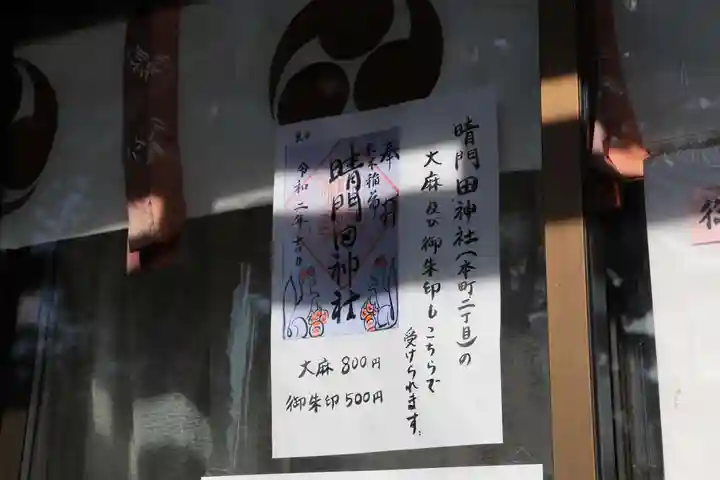 晴門田神社(本町二丁目)の
大麻及び御朱印もこちらで
受けられます。
奉拝
晴門田神社
令和二年吉日
大麻 800円
御朱印 500円